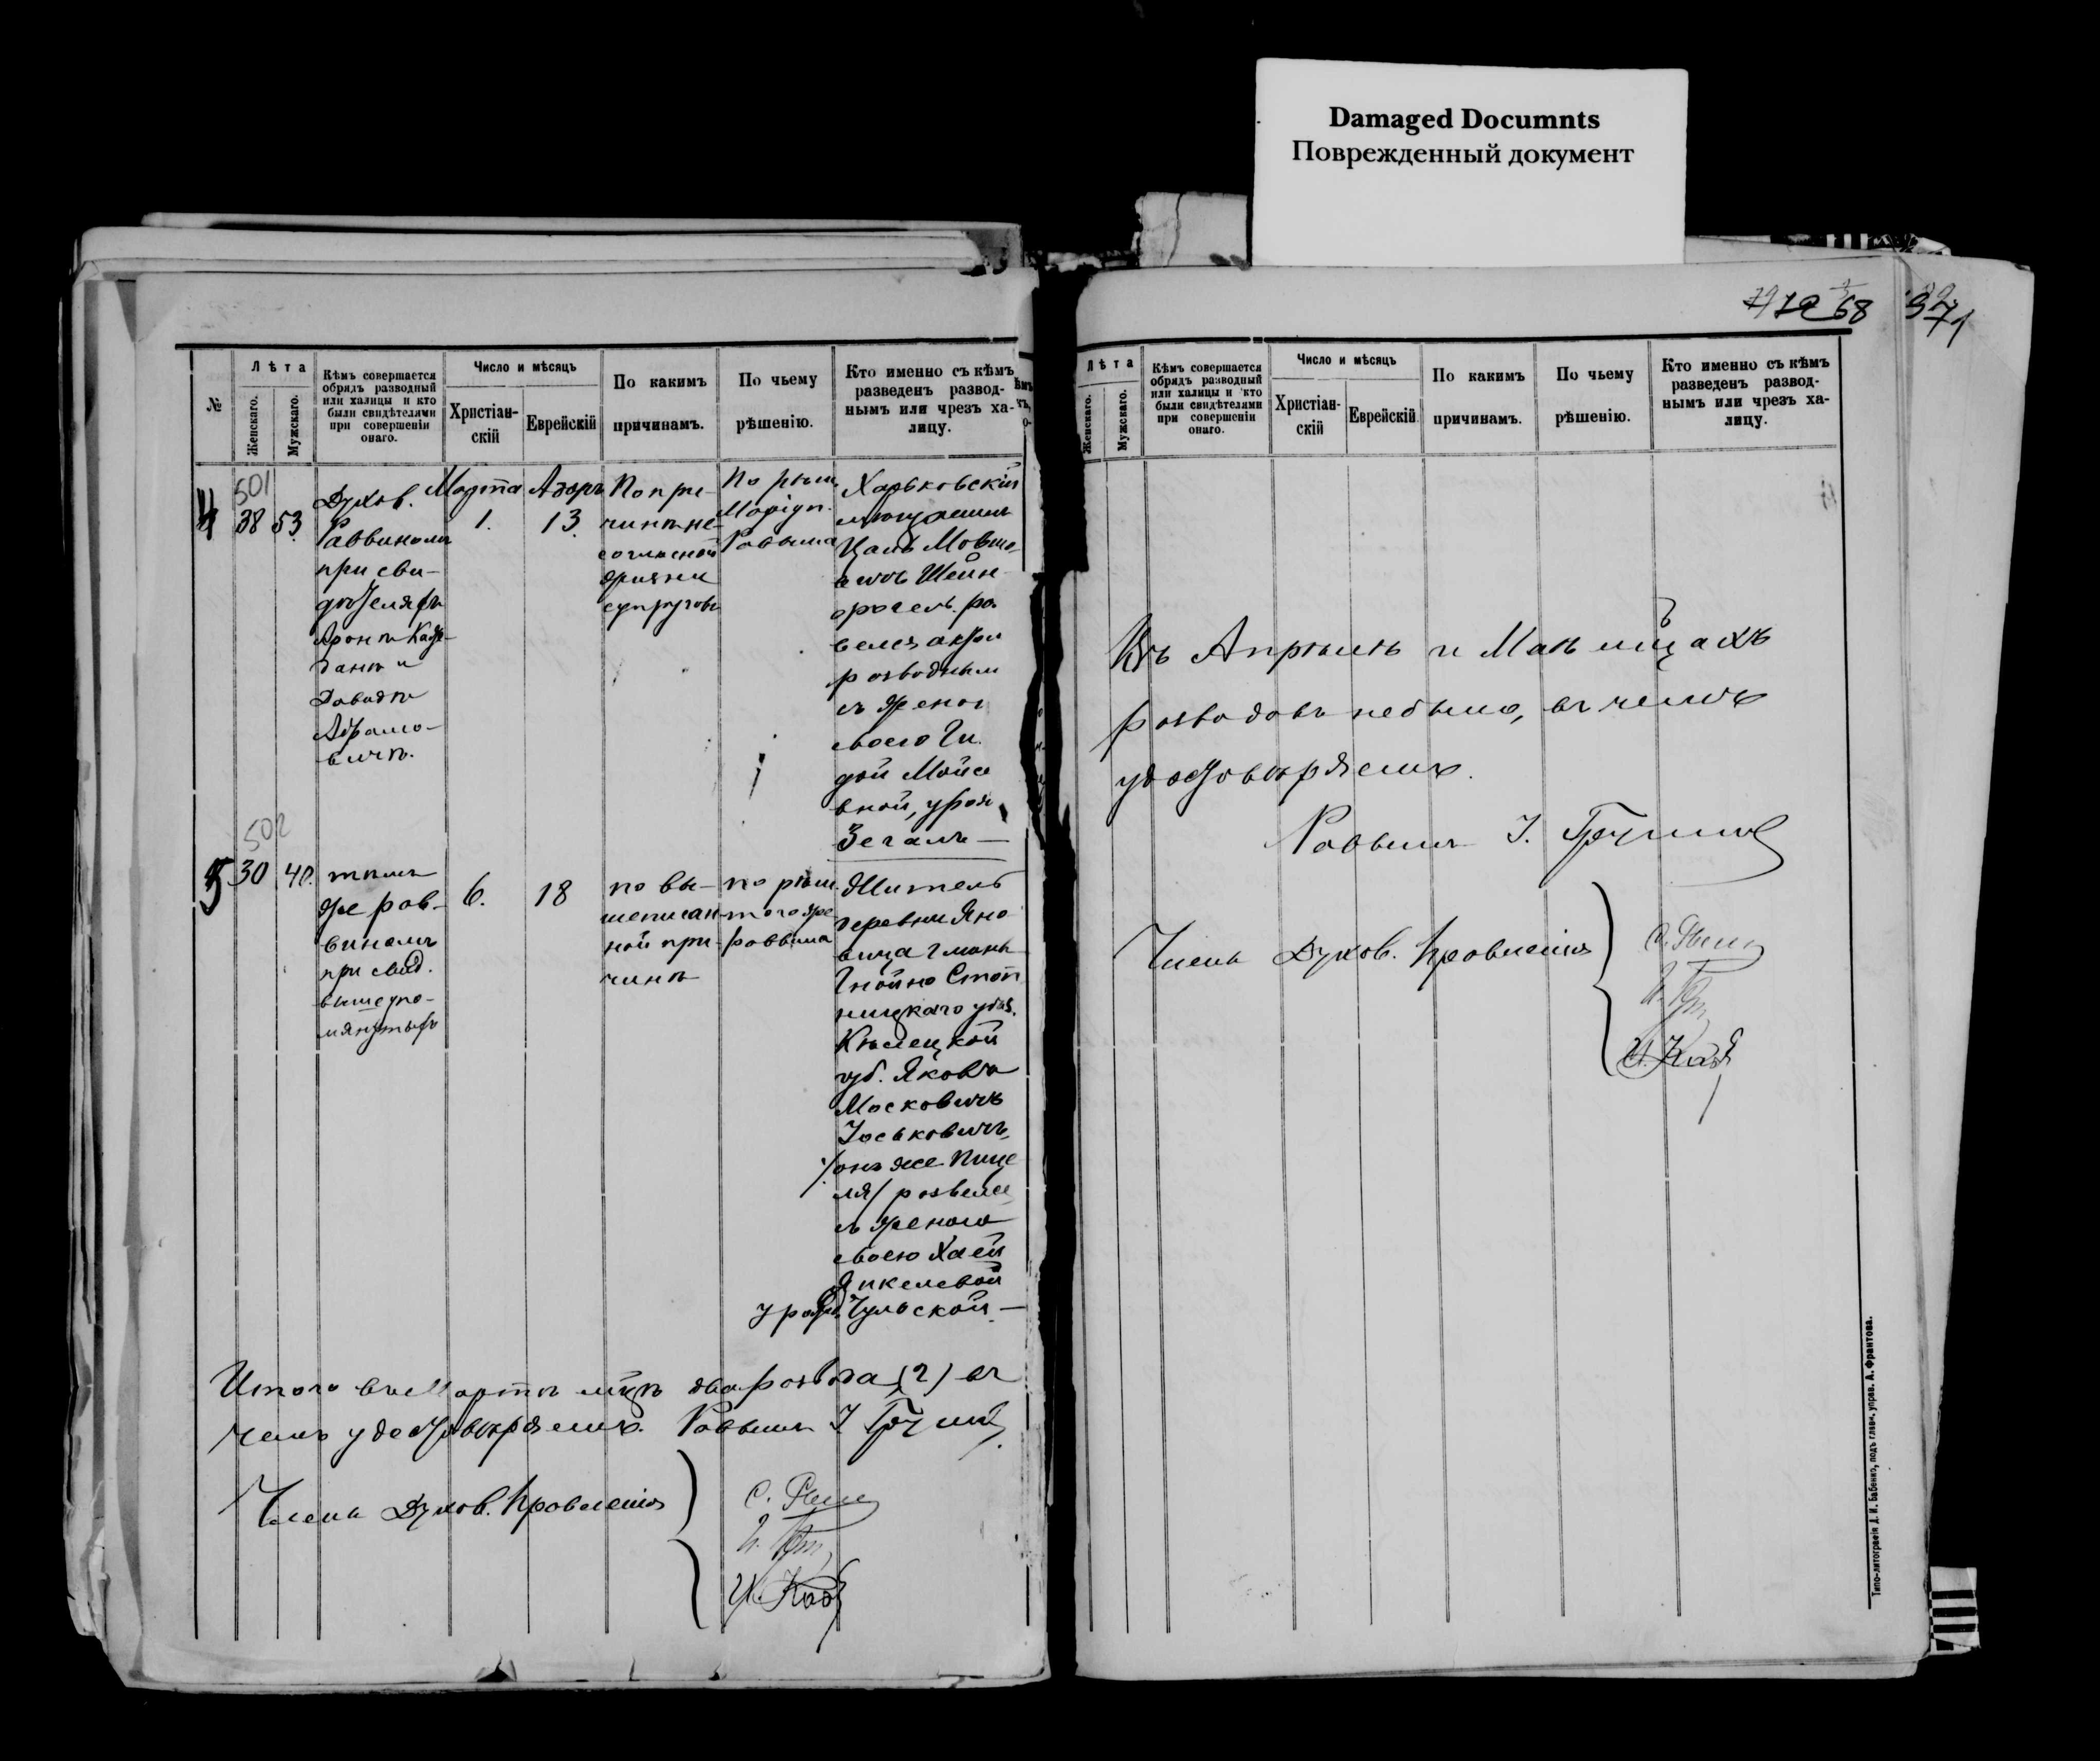 Damaged Documnts
Поврежденный документ
№
Лѣта
Женскаго.
Мужскаго.
Кѣмъ совершается
обрядъ разводный
или халицы и кто
были свидѣтелями
при совершеніи
онаго.
Число и мѣсяцъ
Христіан-
скій
Еврейскій
По какимъ
причинамъ.
По чьему
рѣшенію.
Кто именно съ кѣмъ
разведенъ развод-
нымъ или чрезъ ха-
лицу.
501
4
38
53.
Духов.
Раввиномъ
при сви-
дѣтеляхъ
Аронѣ
и
Давидѣ
Абрамо-
вичѣ.
Марта
1.
Адаръ
13.
По при-
чинѣ не-
согласной
жизни
супруговъ
По рѣш.
Маріуп.
Раввина
Харьковскій
мѣщанинъ
Мовшо-
вичъ Шейн-
развелся актомъ
разводнымъ
съ женою
своею Ги-
дой Мойсе
вной, урож.
Зегаль —
502
5
30
40.
тѣмъ
же рав-
виномъ
при свид.
вышеупо-
мянутыхъ
6.
18
по вы-
шеписан-
ной при-
чинѣ
по рѣш.
того же
раввина
Житель
деревни Яно
вица гмины
Гнойно Стоп
ницкаго уѣз.
Кѣлецкой
губ. Яковъ
Московичъ
Іоськовичъ,
/онъ же
развелся
съ женою
своею Хаей
Янкелевой
урож. Гульской. —
Итого въ Мартѣ мѣцѣ два развода (2) въ
чемъ удостовѣряемъ. Раввинъ І
Члены Духов. Правленія
С.
Лѣта
Женскаго.
Мужскаго.
Кѣмъ совершается
обрядъ разводный
или халицы и кто
были свидѣтелями
при совершеніи
онаго.
Число и мѣсяцъ
Христіан-
скій
Еврейскій
По какимъ
причинамъ.
По чьему
рѣшенію.
Кто именно съ кѣмъ
разведенъ развод-
нымъ или чрезъ ха-
лицу.
68
Въ Апрѣлѣ и Маѣ мѣцахъ
разводовъ не было, въ чемъ
удостовѣряемъ.
Раввинъ І.
Члены Духов. Правленія
Типо-литографія Д. И. Бабенко, подъ главн. управ. А. Франтова.